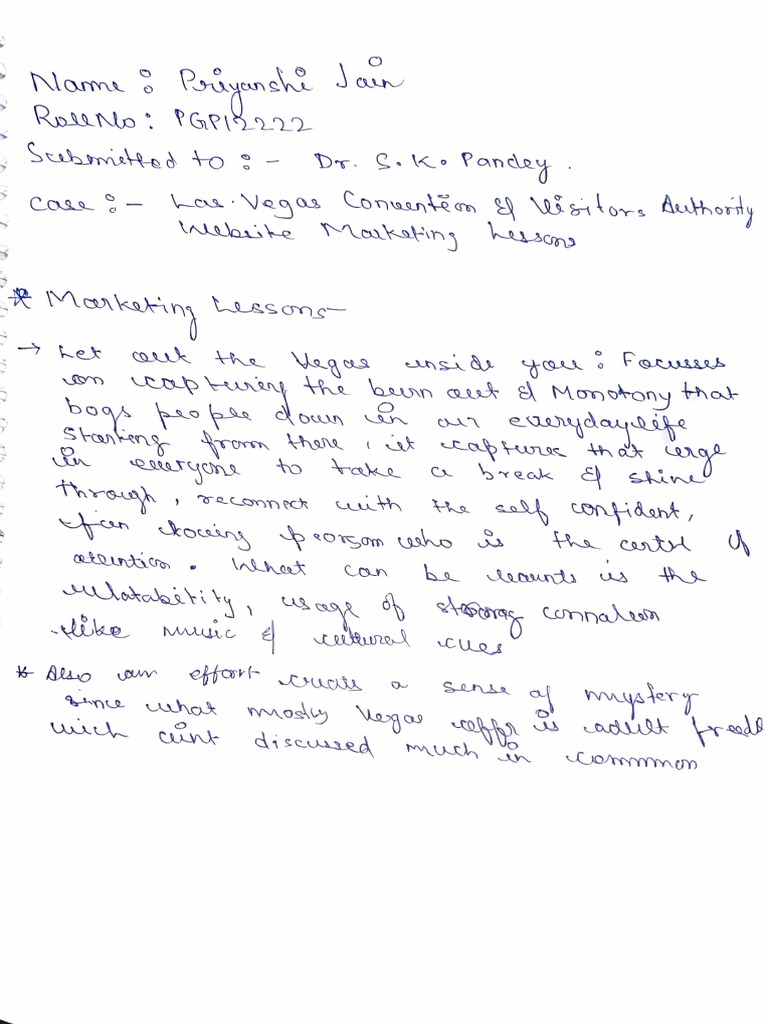 Name : Priyanshi Jain
Roll No : PGP12222
Submitted to :- Dr. S.K. Pandey.
Case :- Las-Vegas Convention & Visitors Authority
Website Marketing Lessons
* Marketing Lessons-
→ Let out the Vegas inside you : Focusses
on capturing the burn out & Monotony that
bogs people down in our everyday life
Starting from there, it captures that urge
in everyone to take a break & shine
through, reconnect with the self confident,
fun loving person who is the of
attention. What can be is the
relatability, usage of strong
like music & cultural cues
* Also an effort creats a sense of mystery
since what mostly Vegas offr is adult
wich discussed much in commmon